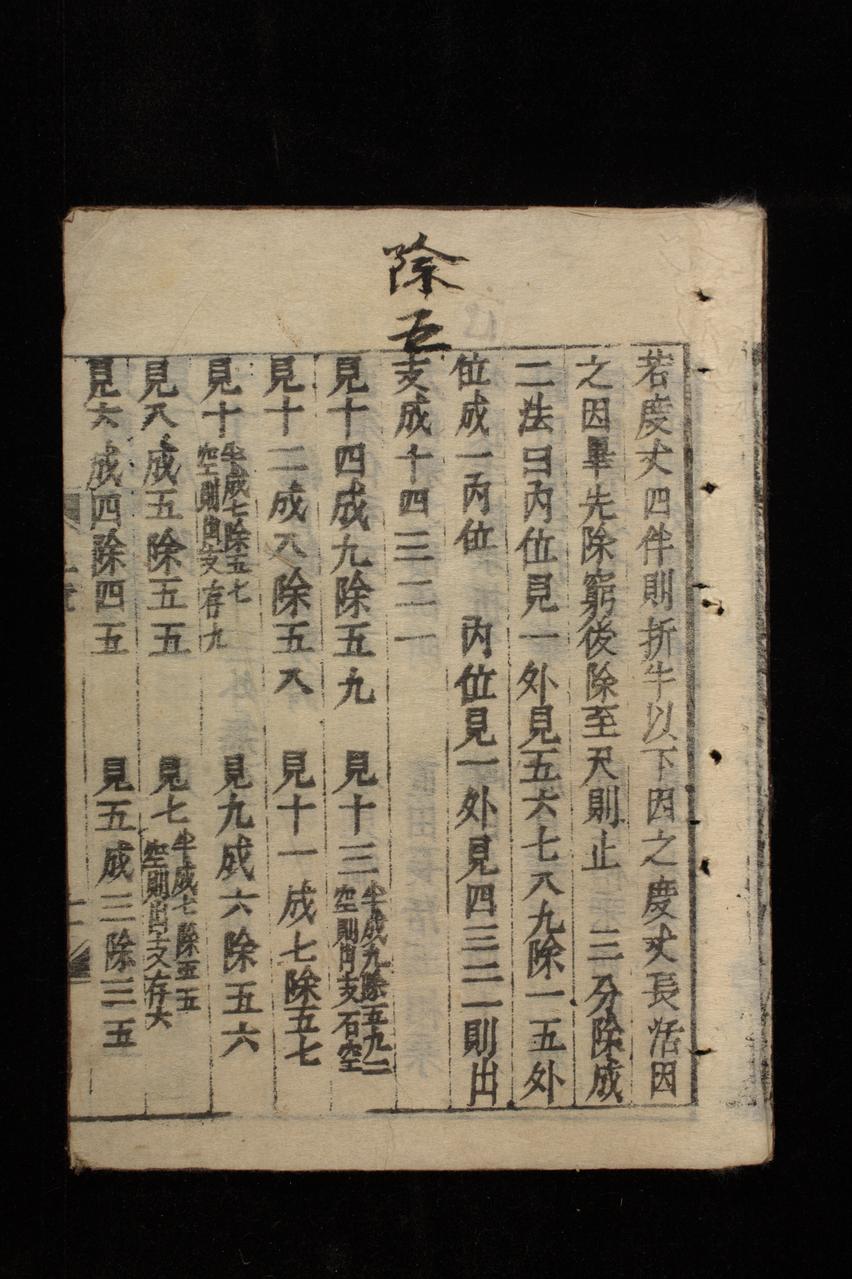 除五
若度丈四件則折半以下因之度丈長活因
之因畢先除窮後除至尺則止 三分除成
二法曰內位見一外見五六七八九除一五外
位成一內位 內位見一外見四三二一則出
支成十四三二一
見十四成九除五九 見十三半成九除五九二空則內支石空
見十二成八除五八 見十一成七除五七
見十半成七除五七空則內支存九 見九成六除五六
見八成五除五五 見七半成七除五五空則出支存六
見六成四除四五 見五成三除三五